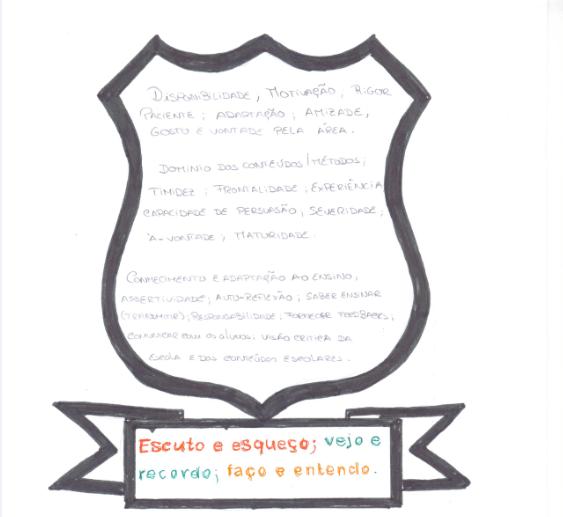 DISPONIBILIDADE, MOTIVAÇÃO, RIGOR
PACIENTE; ADAPTAÇÃO; AMIZADE,
GOSTO E VONTADE PELA ÁREA.
DOMINIO DOS CONTEÚDOS/MÉTODOS;
TIMIDEZ; FRONTALIDADE; EXPERIÊNCIA
CAPACIDADE DE PERSUASÃO; SEVERIDADE;
À-VONTADE; MATURIDADE.
CONHECIMENTO E ADAPTAÇÃO AO ENSINO;
ASSERTIVIDADE; AUTO-REFLEXÃO; SABER ENSINAR
(TRANSMITIR); RESPONSABILIDADE; FORNECER FEEDBACKS;
COMUNICAR COM OS ALUNOS; VISÃO CRITICA DA
ESCOLA E DOS CONTEÚDOS ESCOLARES.
Escuto e esqueço; vejo e
recordo; faço e entendo.